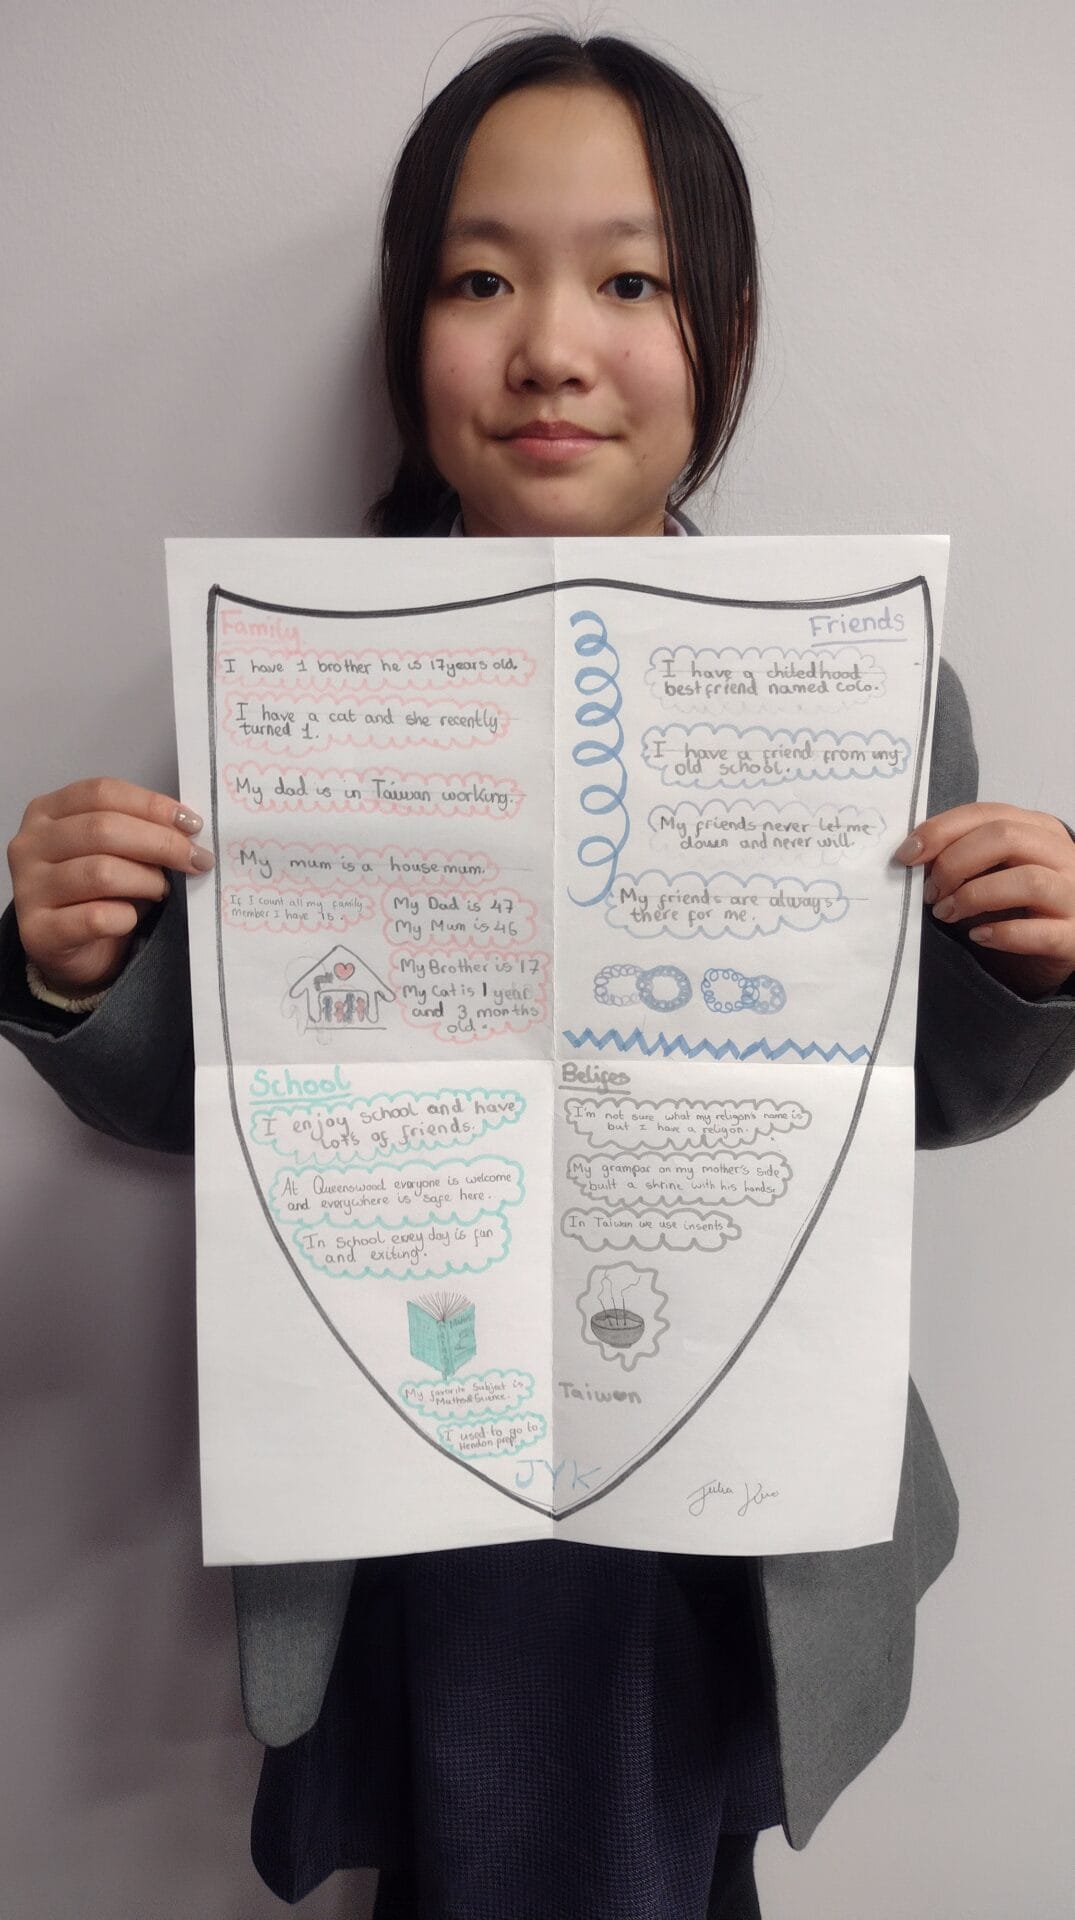 Family
I have 1 brother he is 17years old.
I have a cat and she recently
turned 1.
My dad is in Taiwan working.
My mum is a housemum.
If I count all my family
member I have 15.
My Dad is 47
My Mum is 46
My Brother is 17
My Cat is 1 year
and 3 months
old.
Friends
I have a childhood
best friend named Coco.
I have a friend from my
old school.
My friends never let me
down and never will.
My friends are always
there for me.
School
I enjoy school and have
lots of friends.
At Queenswood everyone is welcome
and everywhere is safe here.
In School every day is fun
and exiting.
My favorite Subject is
Maths&Science.
I used to go to
Hendon prep.
Belifes
I'm not sure what my religon's name is
but I have a religon.
My grampar on my mother's side
built a shrine with his hands.
In Taiwan we use insents
Taiwan
JYK
Julia Kuo